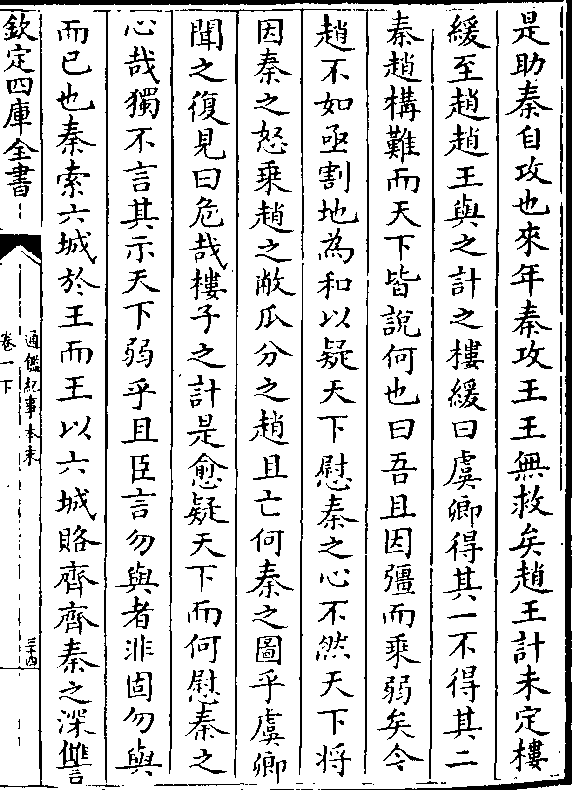 是助秦自攻也來年秦攻王王無救矣趙王計未定樓
緩至趙趙王與之計之樓緩曰虞卿得其一不得其二
秦趙構難而天下皆說何也曰吾且因彊而乘弱矣今
趙不如亟割地為和以疑天下慰秦之心不然天下将
因秦之怒乗趙之敝瓜分之趙且亡何秦之圖乎虞卿
聞之復見曰危哉樓子之計是愈疑天下而何慰秦之
心哉獨不言其示天下弱乎且臣言勿與者非固勿與
而已也秦索六城於王而王以六城賂齊齊秦之深讐
欽定四庫全書
通鑑紀事本末
卷一下
三十四